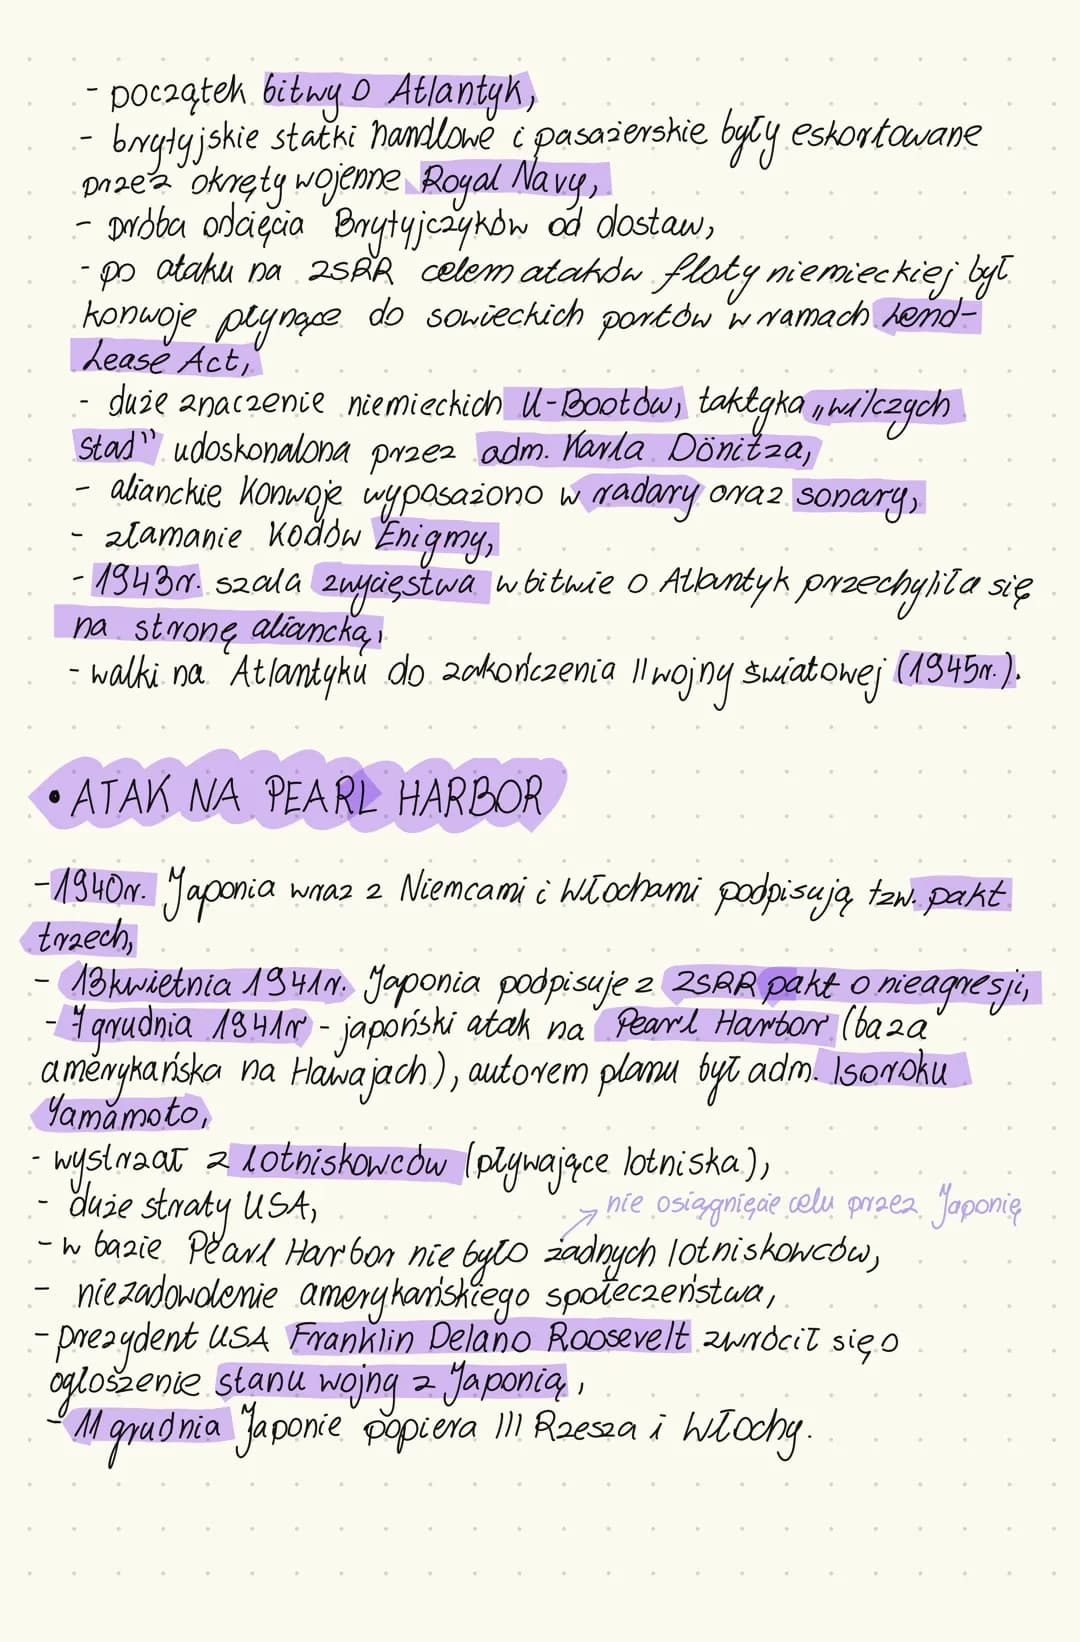 - początek bitwy o Atlantyk,
- brytyjskie statki handlowe i pasażerskie były eskortowane
przez okręty wojenne Royal Navy,
- próba odcięcia Brytyjczyków od dostaw,
- po ataku na ZSRR celem ataków floty niemieckiej był
konwoje płynące do sowieckich portów w ramach Lend-
Lease Act,
- duże znaczenie niemieckich U-Bootów, taktyka „wilczych
stad” udoskonalona przez adm. Karla Dönitza,
- alianckie konwoje wyposażono w radary oraz sonary,
- złamanie kodów Enigmy,
- 1943r. szala zwycięstwa w bitwie o Atlantyk przechyliła się
na stronę aliancką,
- walki na Atlantyku do zakończenia II wojny światowej (1945r.).
• ATAK NA PEARL HARBOR
- 1940r. Japonia wraz z Niemcami i Włochami podpisują tzw. pakt
trzech,
- 13 kwietnia 1941r. Japonia podpisuje z ZSRR pakt o nieagresji,
- 7 grudnia 1941r - japoński atak na Pearl Harbor (baza
amerykańska na Hawajach), autorem planu był adm. Isoroku
Yamamoto,
- wystrzał z lotniskowców (pływające lotniska),
- duże straty USA,
→ nie osiągnięcie celu przez Japonię
- w bazie Pearl Harbor nie było żadnych lotniskowców,
- niezadowolenie amerykańskiego społeczeństwa,
- prezydent USA Franklin Delano Roosevelt zwrócił się o
ogłoszenie stanu wojny z Japonią,
- 11 grudnia Japonie popiera III Rzesza i Włochy.